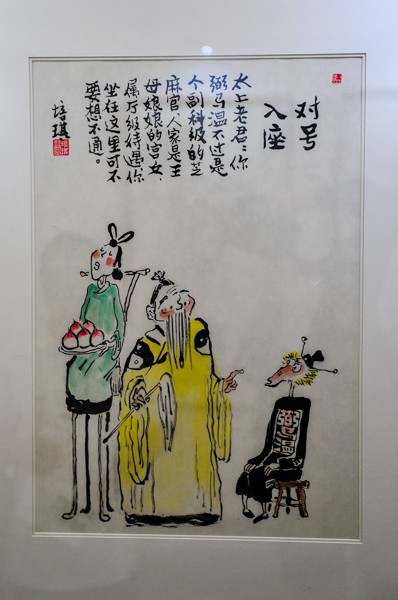 对号
入座
太上老君：你
弼马温不过是
个副科级的芝
麻官，人家是王
母娘娘的宫女，
属厅级待遇你
坐在这里可不
要想不通。
培琪
弼马温